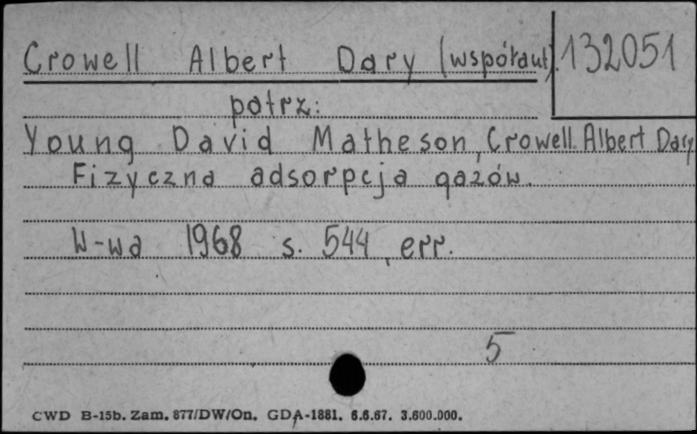 Crowell Albert Dary (współaut). 132051
patrz:
Young David Matheson, Crowell Albert Dary
Fizyczna adsorpcja gazów.
W-wa 1968 s. 544, err.
5
CWD B-15b. Zam. 877/DW/On. GDA-1881. 6.6.67. 3.600.000.